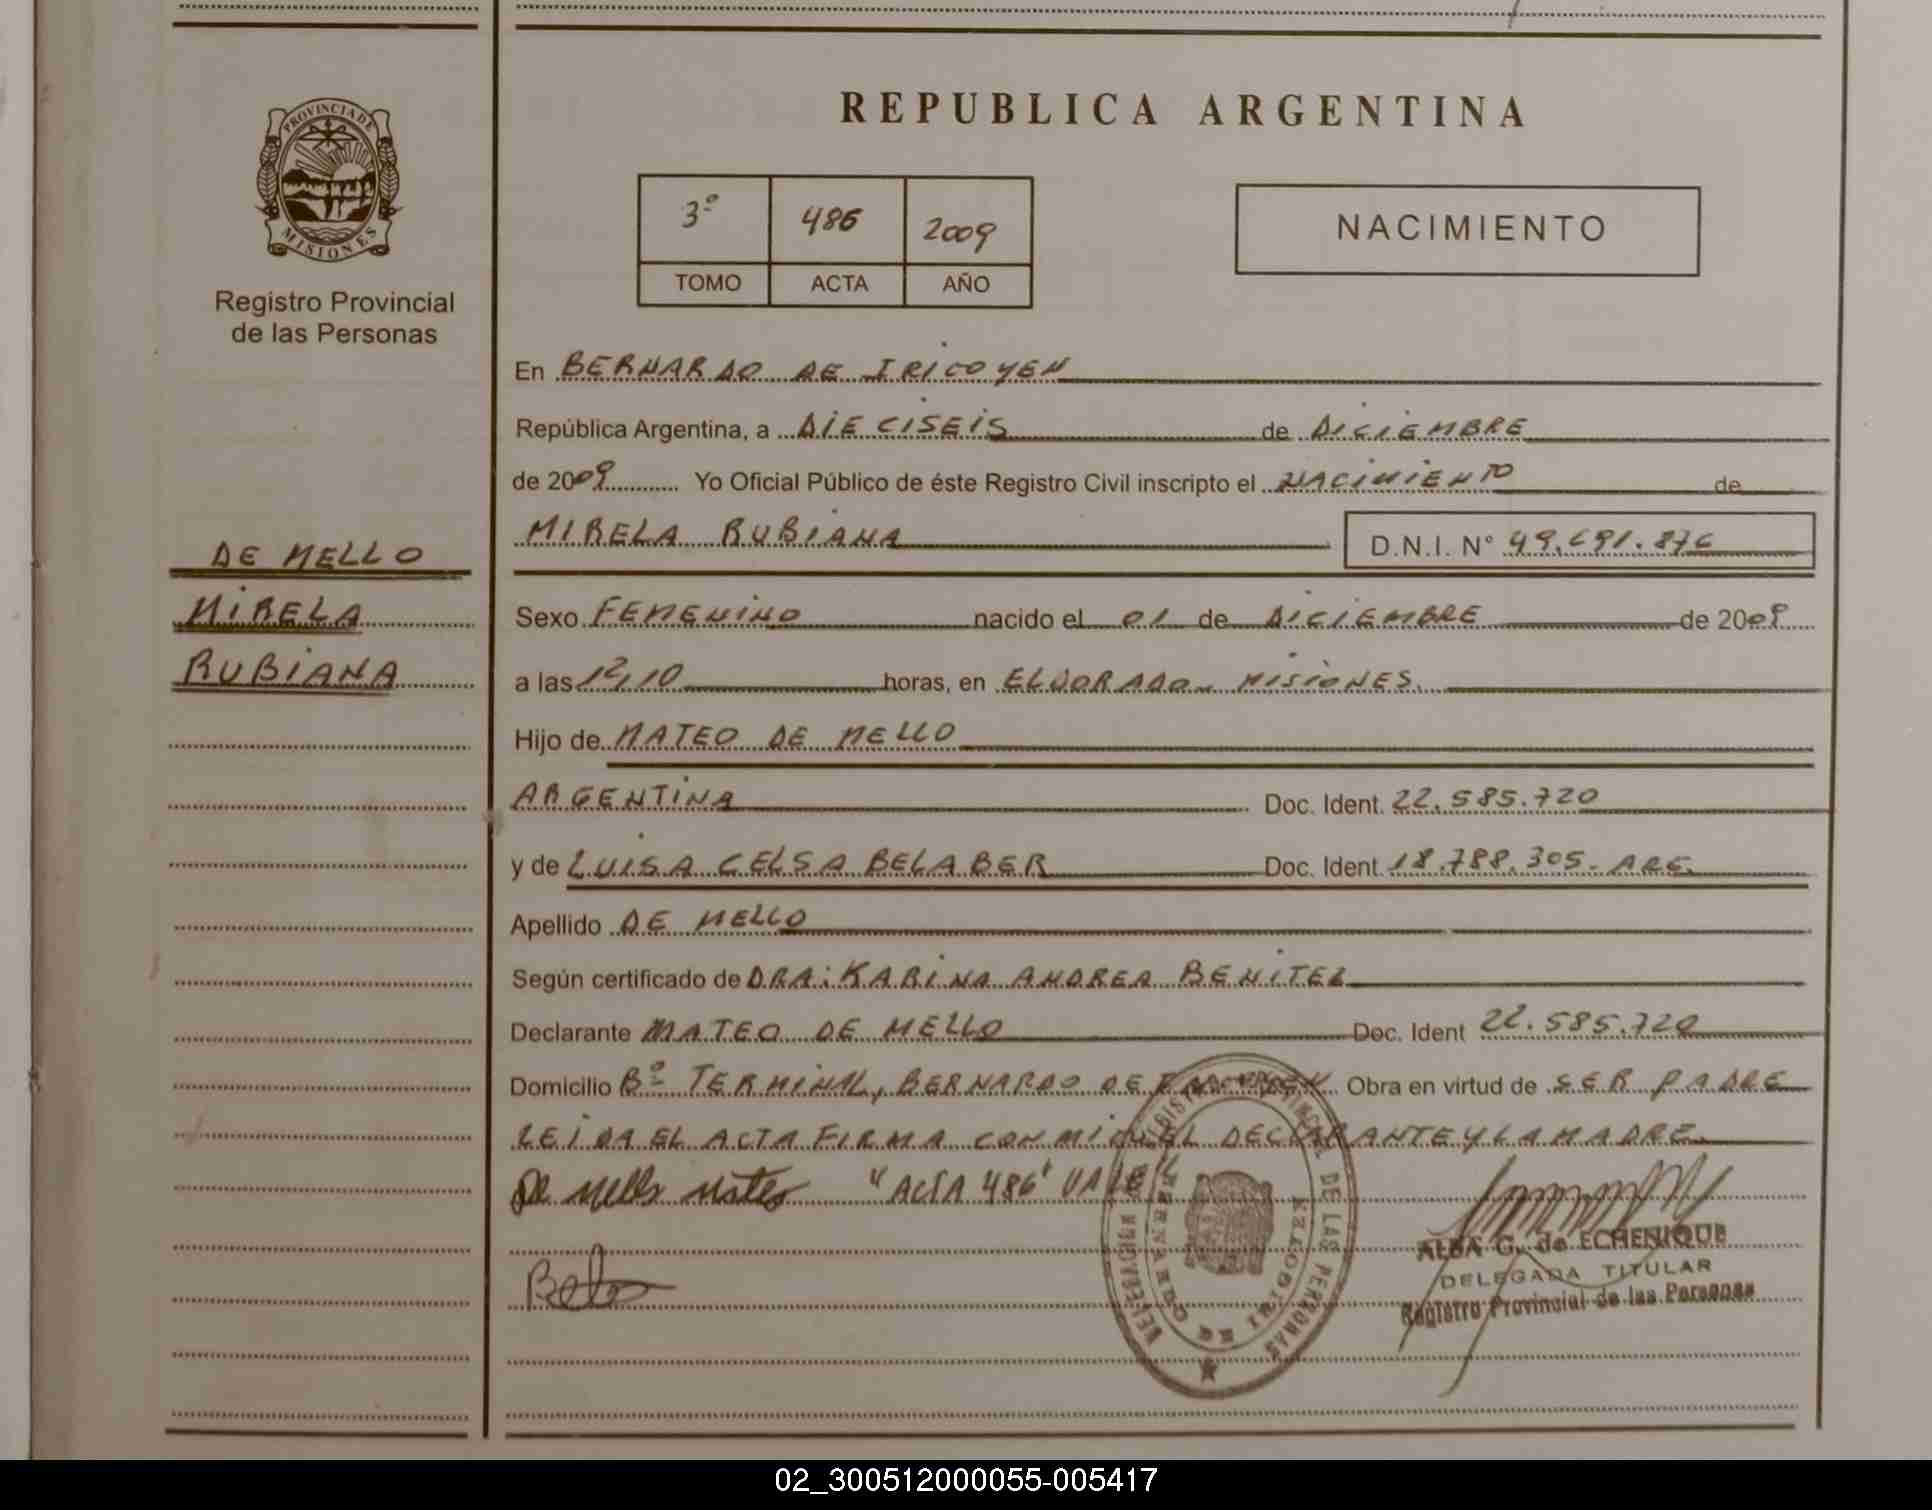 REPUBLICA ARGENTINA
PROVINCIA DE
MISIONES
Registro Provincial
de las Personas
3º 486 2009
TOMO ACTA AÑO
NACIMIENTO
En BERNARDO DE IRIGOYEN
República Argentina, a DIECISEIS de DICIEMBRE
de 2009 Yo Oficial Público de éste Registro Civil inscripto el NACIMIENTO de
MIRELA RUBIANA D.N.I. Nº 49.691.876
DE MELLO
MIRELA
RUBIANA
Sexo FEMENINO nacido el 01 de DICIEMBRE de 2009
a las 12,10 horas, en ELDORADO - MISIONES.
Hijo de MATEO DE MELLO
ARGENTINA Doc. Ident. 22.585.720
y de LUISA CELSA BELABER Doc. Ident. 18.788.305. ARG.
Apellido DE MELLO
Según certificado de DRA: KARINA ANDREA BENITEZ
Declarante MATEO DE MELLO Doc. Ident 22.585.720
Domicilio Bº TERMINAL, BERNARDO DE IRIGOYEN Obra en virtud de SER PADRE
LEIDA EL ACTA FIRMA CON MIGO EL DECLARANTE Y LA MADRE.
De Mello Mateo "ACTA 486" VALE
ALBA G. de ECHENIQUE
DELEGADA TITULAR
Registro Provincial de las Personas
02_300512000055-005417